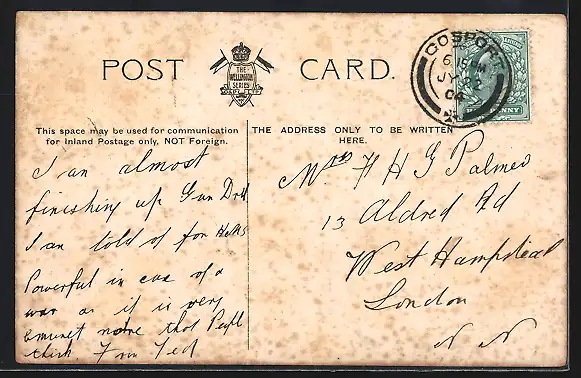 POST CARD.
THE
WELLINGTON
SERIES
GOSPORT
6 15
JY
04
PENNY
This space may be used for communication
for Inland Postage only, NOT Foreign.
THE ADDRESS ONLY TO BE WRITTEN
HERE.
I an almost
finishing up Gun Drill
I an told of for H M S
Powerful in case of a
war as it is very
nore that Peopl
think From Ted
Mrs H H G Palmer
13 Aldred Rd
West Hampstead
London
N N